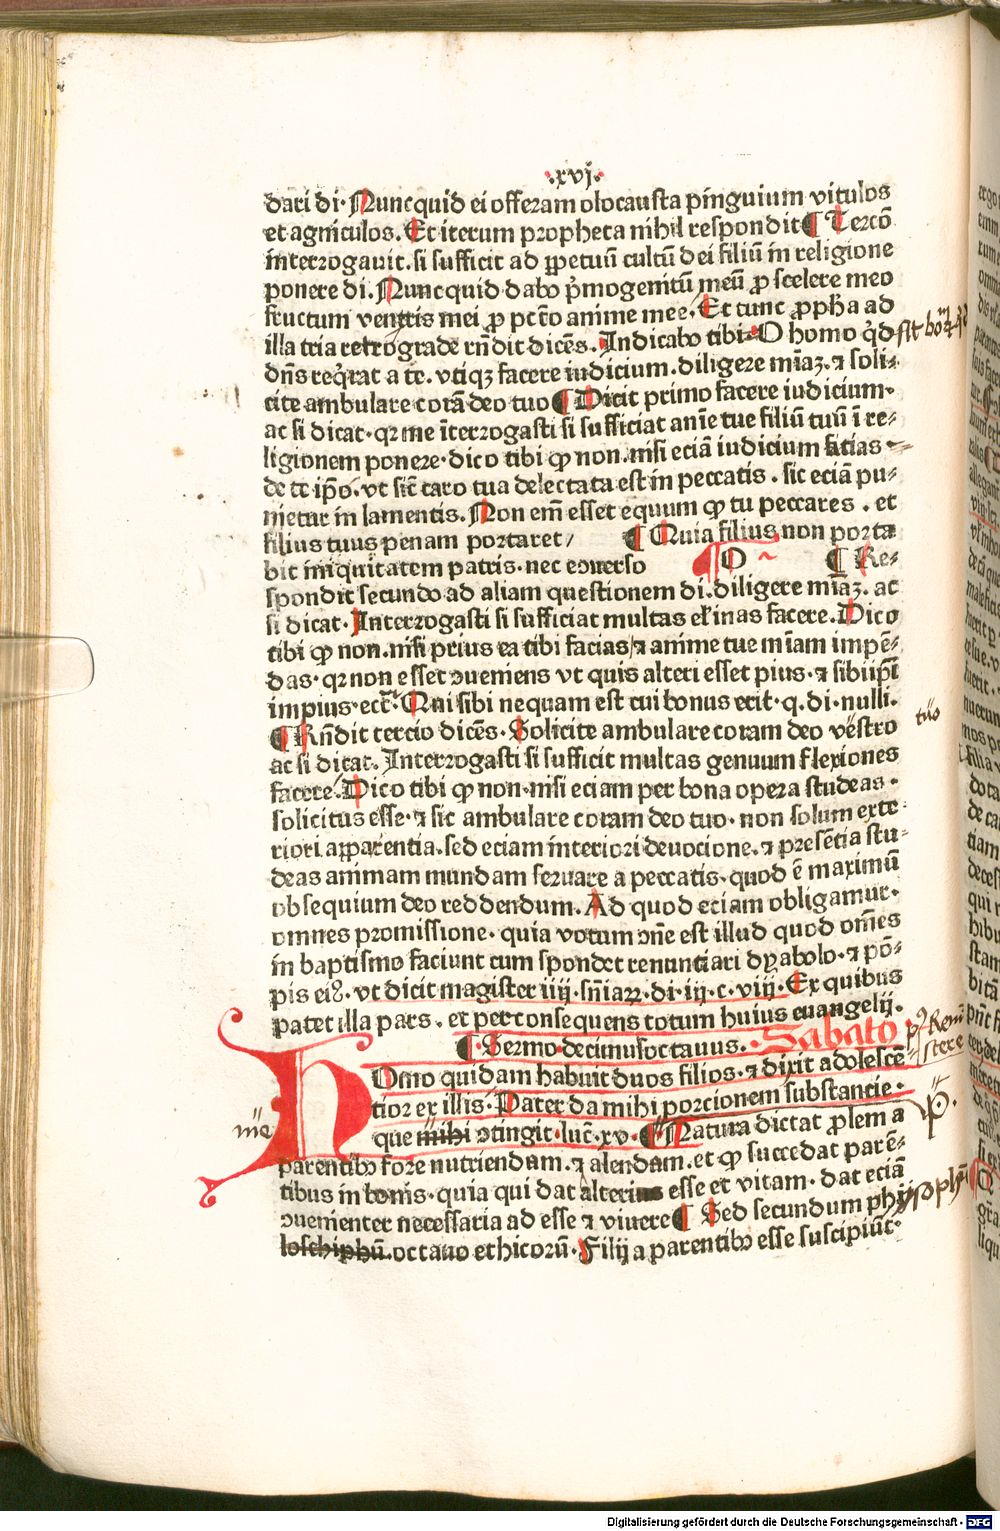 ·xvj·
dari di· Nuncquid ei offeram olocausta pinguium vitulos
et agniculos. Et iterum propheta nihil respondit ¶ Tercō
interrogauit. si sufficit ad ꝑpetuū cultū dei filiū in religione
ponere di. Nuncquid dabo p̄mogenitū meū ꝓ scelere meo
fructum ventris mei ꝓ pctō anime mee. Et tunc ꝓpħa ad
illa tria retrograde rn̄dit dicēs. Indicabo tibi· O homo q̇d
dn̄s req̇rat a te. vtiqꝫ facere iudicium. diligere miāꝫ. ⁊ soli-
cite ambulare corā deo tuo ¶ Dicit primo facere iudicium·
ac si dicat· qꝛ me īterrogasti si sufficiat anīe tue filiū tuū ī re-
ligionem ponere· dico tibi ꝙ non. nisi eciā iudicium facias
de te ip̄o. vt sic̄ caro tua delectata est in peccatis. sic eciā pu-
nietur in lamentis. Non em̄ esset equum ꝙ tu peccares. et
filius tuus penam portaret / ¶ Quia filius non porta
bit iniquitatem patris· nec eↄuerso ¶ O ¶ Re-
spondit secundo ad aliam questionem di. diligere miāꝫ. ac
si dicat· Interrogasti si sufficiat multas eł'inas facere. Dico
tibi ꝙ non. nisi prius ea tibi facias ⁊ anime tue miam impē-
das· qꝛ non esset ↄueniens vt quis alteri esset pius· ⁊ sibiip̄i
impius· ect̄. Qui sibi nequam est cui bonus erit· q. di· nulli.
¶ Rn̄dit tercio dicēs· Solicite ambulare coram deo vestro
tuo
ac si dicat. Interrogasti si sufficit multas genuum flexiones
facere. Dico tibi ꝙ non· nisi eciam per bona opera studeas·
solicitus esse· ⁊ sic ambulare coram deo tuo· non solum exte
riori apparentia. sed eciam interiori deuocione. ⁊ presētia stu-
deas animam mundam seruare a peccatis· quod ē maximū
obsequium deo reddendum. Ad quod eciam obligamur·
omnes promissione· quia votum ↄn̄e est illud quod om̄es
in baptismo faciunt cum spondet renunciari dyabolo· ⁊ pō-
pis eiꝰ. vt dicit magister iiij· sn̄iaꝝ· di· iij· c· viij· Ex quibus
patet illa pars. et per consequens totum huius euangelij.
¶ Sermo decimusoctauus. Sabato
HOmo quidam habuit duos filios· ⁊ dixit adolescē-
tior ex illis· Pater da mihi porcionem substancie·
me
que mihi ↄtingit· luc̄· xv· ¶ Natura dictat ꝓlem a
parentibꝰ fore nutriendam. ⁊ alendam. et ꝙ succedat parē-
tibus in bonis· quia qui dat alterius esse et vitam· dat eciā
ↄuenienter necessaria ad esse ⁊ viuere ¶ Sed secundum phy
loschiphū. octauo ethicorū· Filij a parentibꝰ esse suscipiūt·
Digitalisierung gefördert durch die Deutsche Forschungsgemeinschaft - DFG